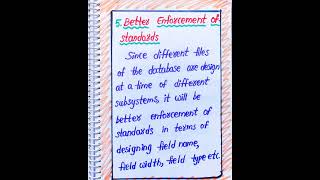 5. Better Enforcement of
standards
Since different files
of the database are design
at a time of different
subsystems, it will be
better enforcement of
standards in terms of
designing field name,
field width, field type etc.